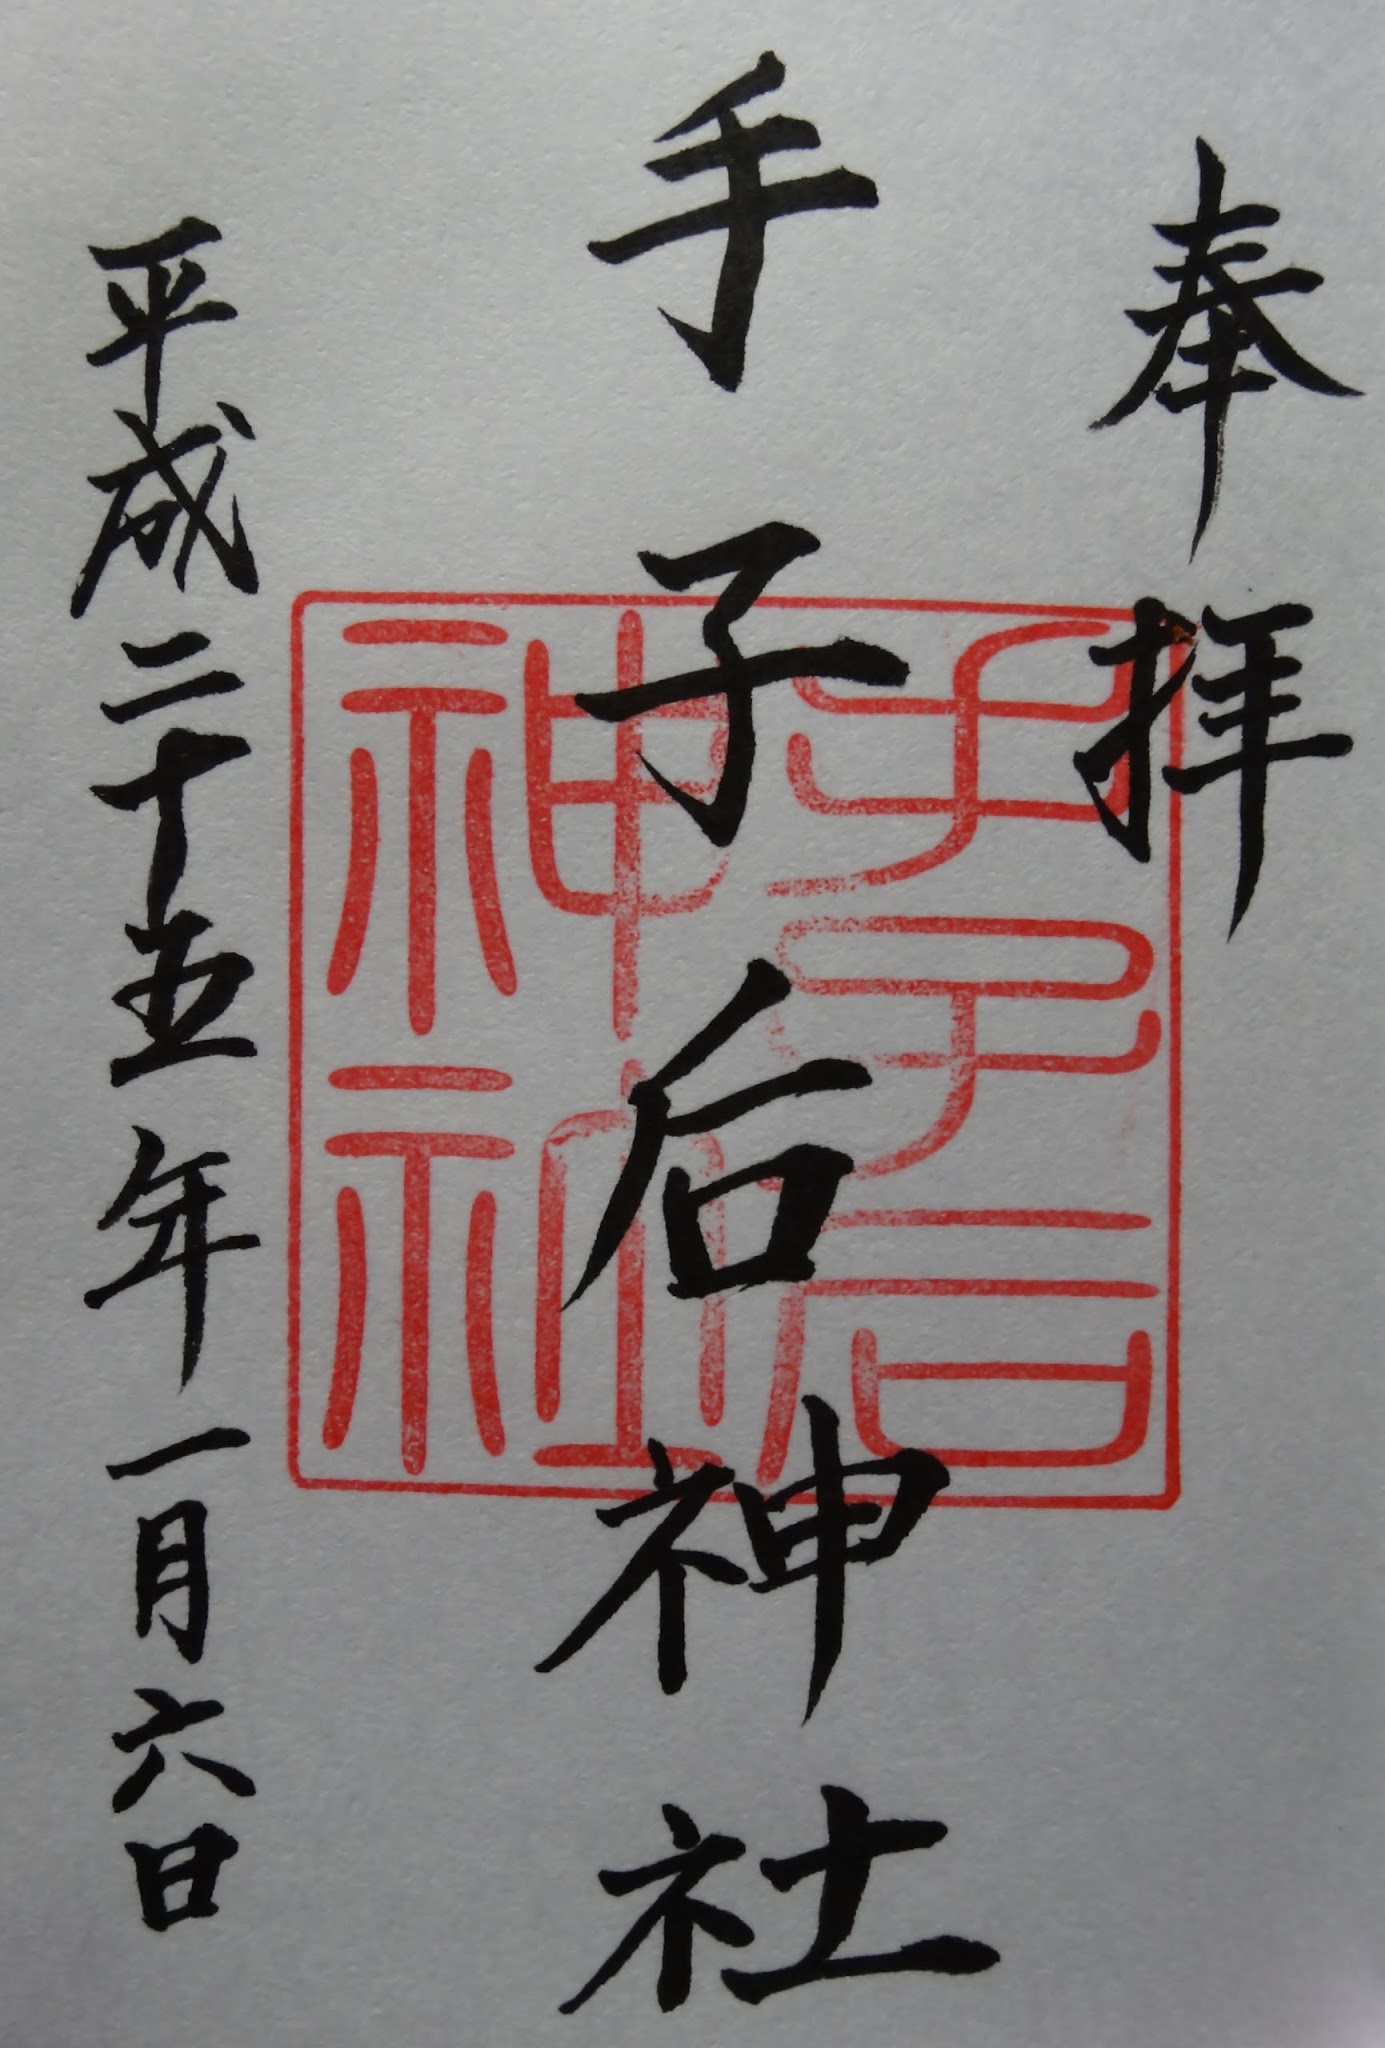 奉拝
手子后神社
手子后
神社
平成二十五年一月六日